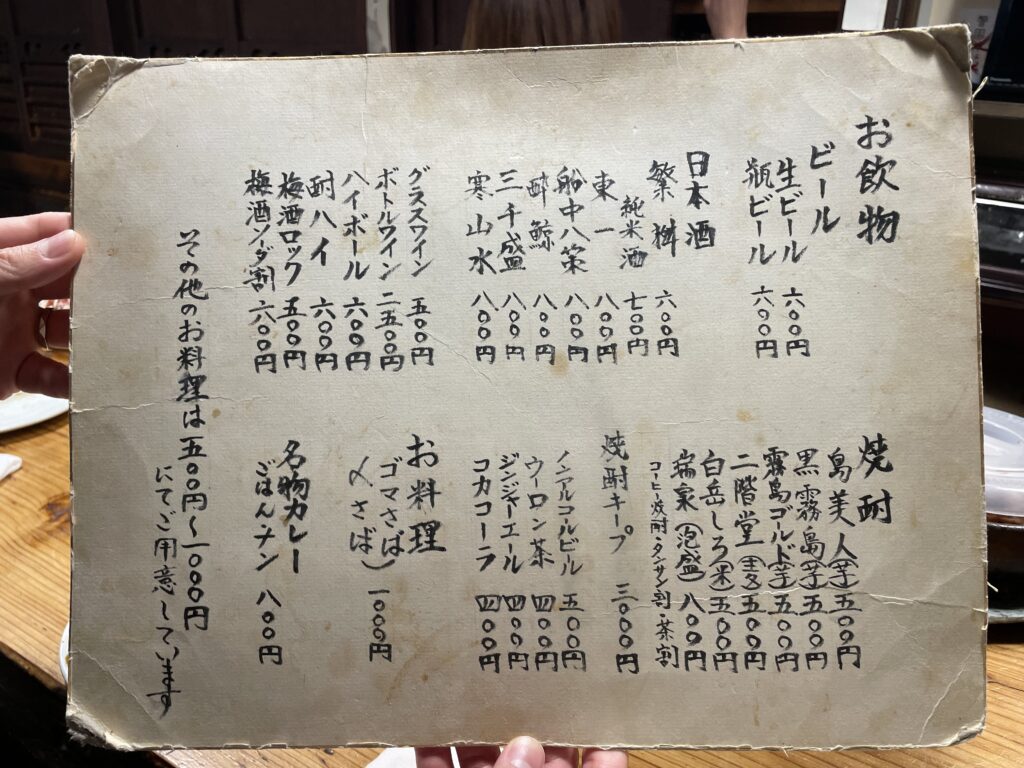 お飲物
ビール
生ビール 六〇〇円
瓶ビール 六〇〇円
日本酒
繁桝 六〇〇円
純米酒 七〇〇円
東一 八〇〇円
船中八策 八〇〇円
酔鯨 八〇〇円
三千盛 八〇〇円
寒山水 八〇〇円
グラスワイン 五〇〇円
ボトルワイン 二五〇〇円
ハイボール 六〇〇円
酎ハイ 六〇〇円
梅酒ロック 五〇〇円
梅酒ソーダ割 六〇〇円
焼酎
島美人(芋)五〇〇円
黒霧島(芋)五〇〇円
霧島ゴールド(芋)五〇〇円
二階堂(麦)五〇〇円
白岳しろ(米)五〇〇円
瑞泉(泡盛)八〇〇円
コーヒー焼酎・タンサン割・茶割
焼酎キープ 三〇〇〇円
ノンアルコールビール 五〇〇円
ウーロン茶 四〇〇円
ジンジャーエール 四〇〇円
コカコーラ 四〇〇円
お料理
ゴマさば
〆さば 一〇〇〇円
名物カレー
ごはんナン 八〇〇円
その他のお料理は五〇〇円〜一〇〇〇円
にてご用意しています